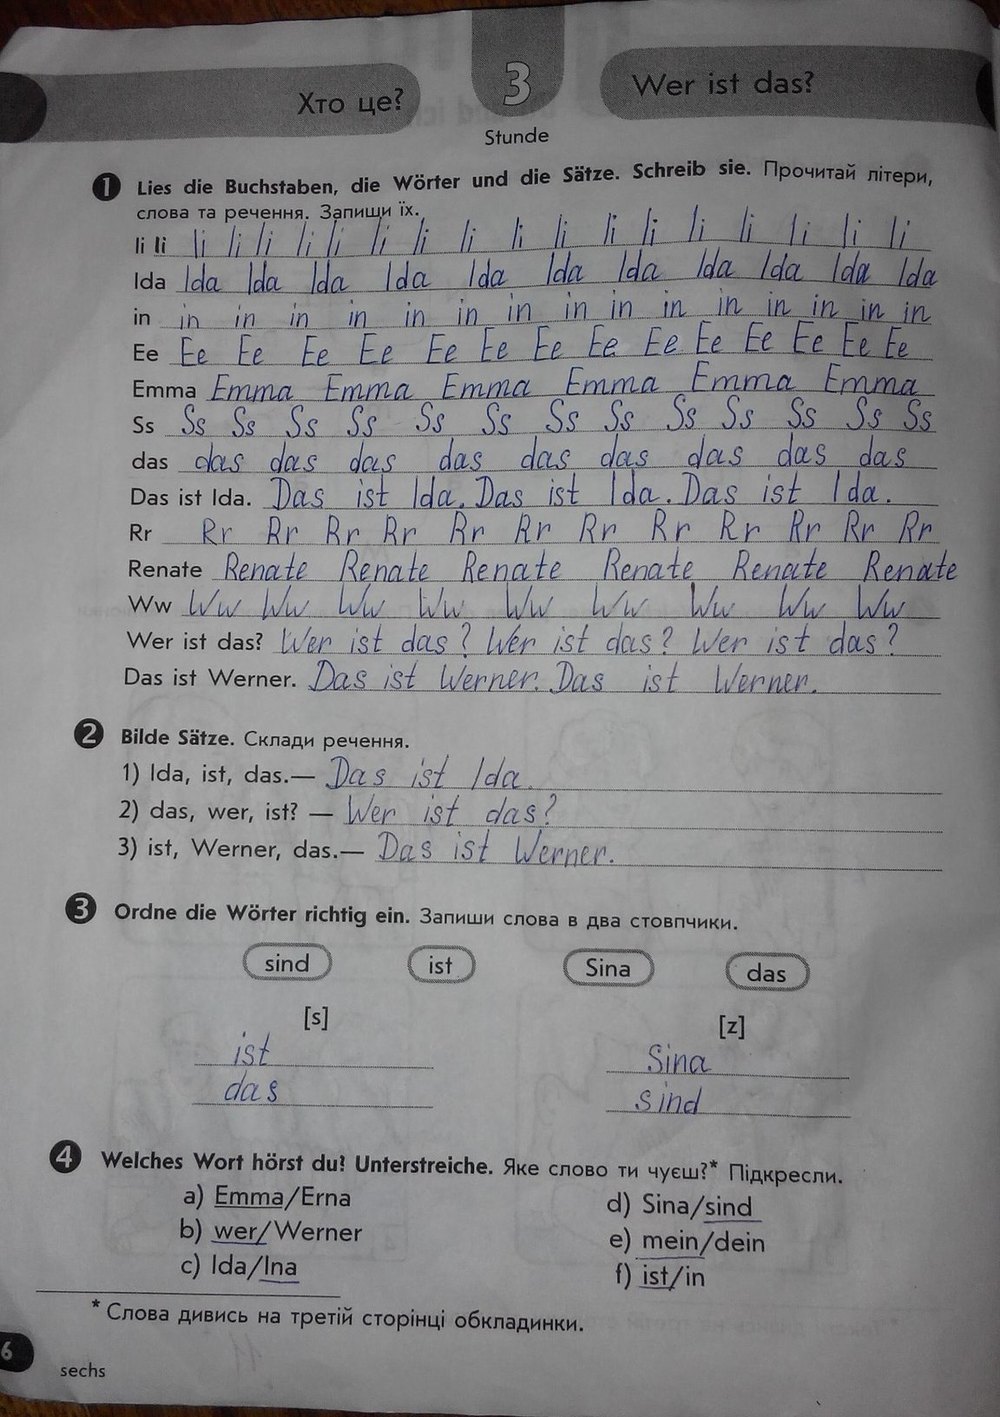 Хто це?
3
Wer ist das?
Stunde
1 Lies die Buchstaben, die Wörter und die Sätze. Schreib sie. Прочитай літери,
слова та речення. Запиши їх.
Ii Ii Ii Ii Ii Ii Ii Ii Ii Ii Ii Ii Ii Ii Ii Ii Ii Ii Ii
Ida Ida Ida Ida Ida Ida Ida Ida Ida Ida Ida Ida
in in in in in in in in in in in in in in in
Ee Ee Ee Ee Ee Ee Ee Ee Ee Ee Ee Ee Ee Ee Ee
Emma Emma Emma Emma Emma Emma Emma
Ss Ss Ss Ss Ss Ss Ss Ss Ss Ss Ss Ss Ss Ss
das das das das das das das das das das
Das ist Ida. Das ist Ida. Das ist Ida. Das ist Ida.
Rr Rr Rr Rr Rr Rr Rr Rr Rr Rr Rr Rr Rr
Renate Renate Renate Renate Renate Renate Renate
Ww Ww Ww Ww Ww Ww Ww Ww Ww Ww
Wer ist das? Wer ist das? Wer ist das? Wer ist das?
Das ist Werner. Das ist Werner. Das ist Werner.
2 Bilde Sätze. Склади речення.
1) Ida, ist, das.— Das ist Ida.
2) das, wer, ist? — Wer ist das?
3) ist, Werner, das.— Das ist Werner.
3 Ordne die Wörter richtig ein. Запиши слова в два стовпчики.
sind ist Sina das
[s] [z]
ist Sina
das sind
4 Welches Wort hörst du? Unterstreiche. Яке слово ти чуєш?* Підкресли.
a) Emma/Erna d) Sina/sind
b) wer/Werner e) mein/dein
c) Ida/Ina f) ist/in
* Слова дивись на третій сторінці обкладинки.
6
sechs